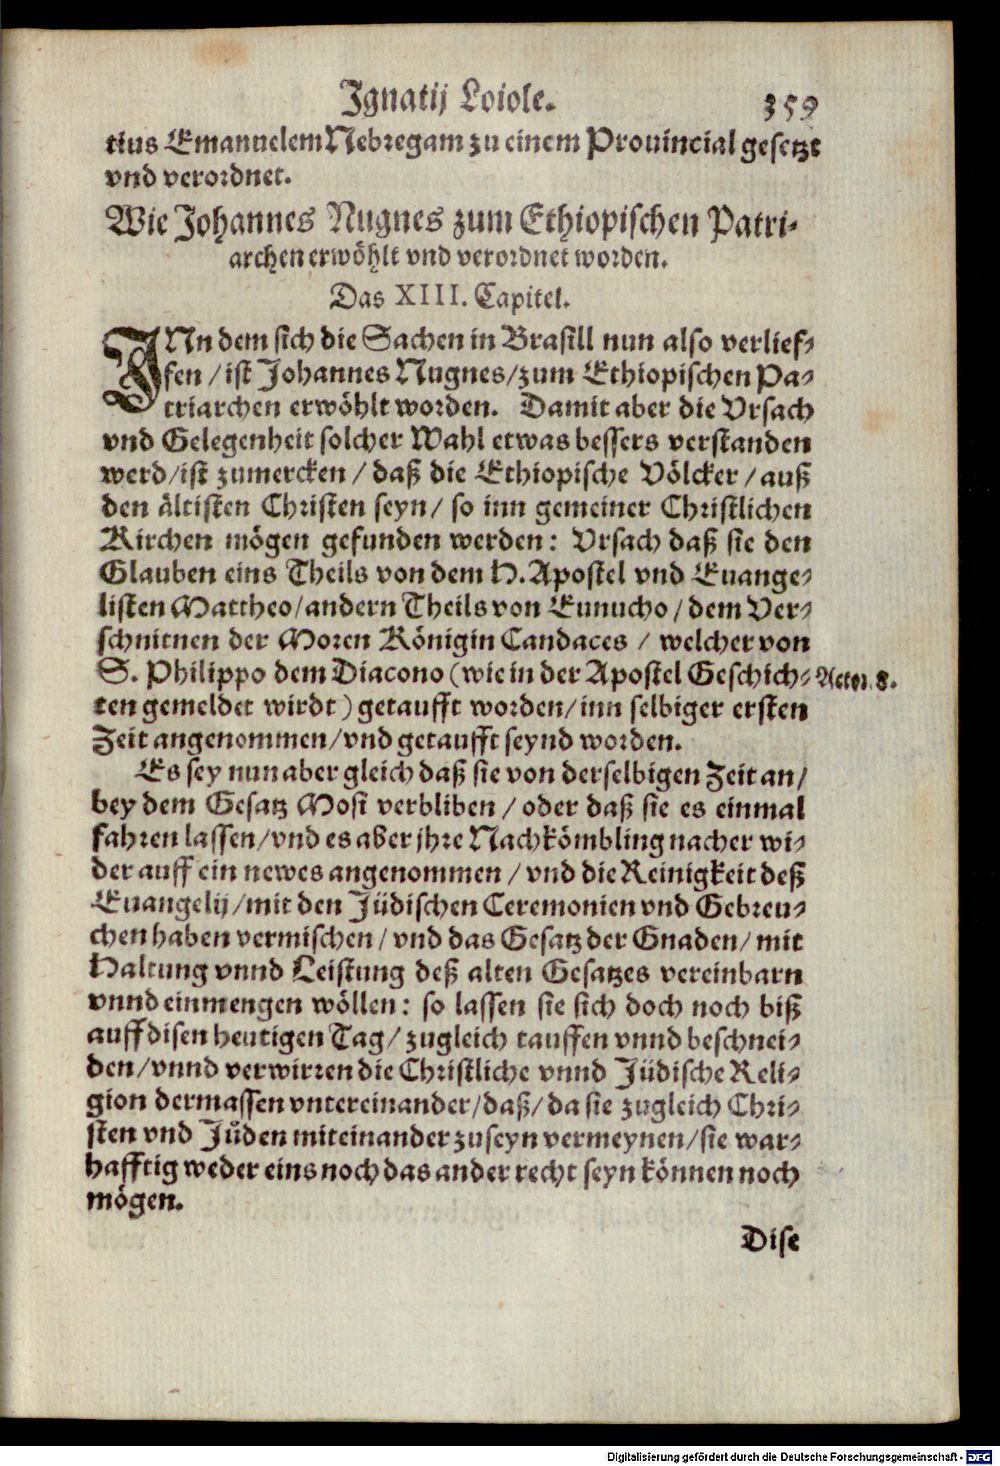 Ignatij Loiole. 359
tius Emanuelem Nebregam zu einem Prouincial gesetzt
vnd verordnet.
Wie Johannes Nugnes zum Ethiopischen Patri-
archen erwöhlt vnd verordnet worden.
Das XIII. Capitel.
INn dem sich die Sachen in Brasill nun also verlief-
fen / ist Johannes Nugnes / zum Ethiopischen Pa-
triarchen erwöhlt worden. Damit aber die Vrsach
vnd Gelegenheit solcher Wahl etwas bessers verstanden
werd / ist zumercken / daß die Ethiopische Völcker / auß
den ältisten Christen seyn / so inn gemeiner Christlichen
Kirchen mögen gefunden werden: Vrsach daß sie den
Glauben eins Theils von dem H. Apostel vnd Euange-
listen Mattheo / andern Theils von Eunucho / dem Ver-
schnitnen der Moren Königin Candaces / welcher von
S. Philippo dem Diacono (wie in der Apostel Geschich- Actor. 8.
ten gemeldet wirdt) getaufft worden / inn selbiger ersten
Zeit angenommen / vnd getaufft seynd worden.
Es sey nun aber gleich daß sie von derselbigen Zeit an /
bey dem Gesatz Mosi verbliben / oder daß sie es einmal
fahren lassen / vnd es aber jhre Nachkömbling nacher wi-
der auff ein newes angenommen / vnd die Reinigkeit deß
Euangelij / mit den Jüdischen Ceremonien vnd Gebreu-
chen haben vermischen / vnd das Gesatz der Gnaden / mit
Haltung vnnd Leistung deß alten Gesatzes vereinbarn
vnnd einmengen wöllen: so lassen sie sich doch noch biß
auff disen heutigen Tag / zugleich tauffen vnnd beschnei-
den / vnnd verwirren die Christliche vnnd Jüdische Reli-
gion dermassen vntereinander / daß / da sie zugleich Chri-
sten vnd Jüden miteinander zuseyn vermeynen / sie war-
hafftig weder eins noch das ander recht seyn können noch
mögen.
Dise
Digitalisierung gefördert durch die Deutsche Forschungsgemeinschaft - DFG